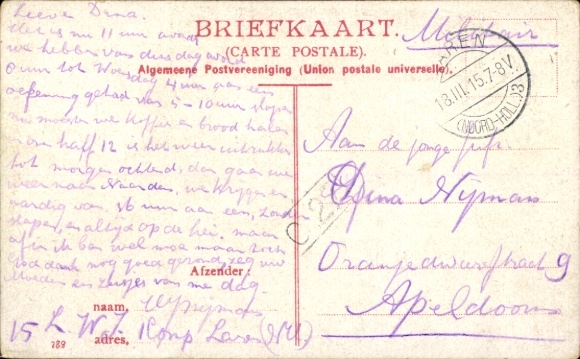 BRIEFKAART.
(CARTE POSTALE).
Algemeene Postvereeniging (Union postale universelle).
Militair
LAREN
18.III.15.7-8V.
(NOORD-HOLL.)3
Lieve Dina.
Het is nu 11 uur avond
we hebben van dinsdag avond
8 uur tot Woensdag 4 uur aan een
oefening gehad van 5-10 uur slapen
nu moeten we koffie en brood halen
om half 12 is het weer uitrukken
tot morgen ochtend, dan gaan we
weer naar Naarden, we krijgen er
aardig van, 36 uur aan een, zonder
slapen, en altijd op de hei. maar
afijn ik ben wel moe maar toch
God dank nog goed gezond, zeg uw
Moeder en zusjes van me dag
Afzender:
naam, Nijman
adres, 15 L.W.I. Komp Laren (NH)
188
Aan de jonge jufr.
Dina Nijman
Oranjedwarsstraat 9
Apeldoorn